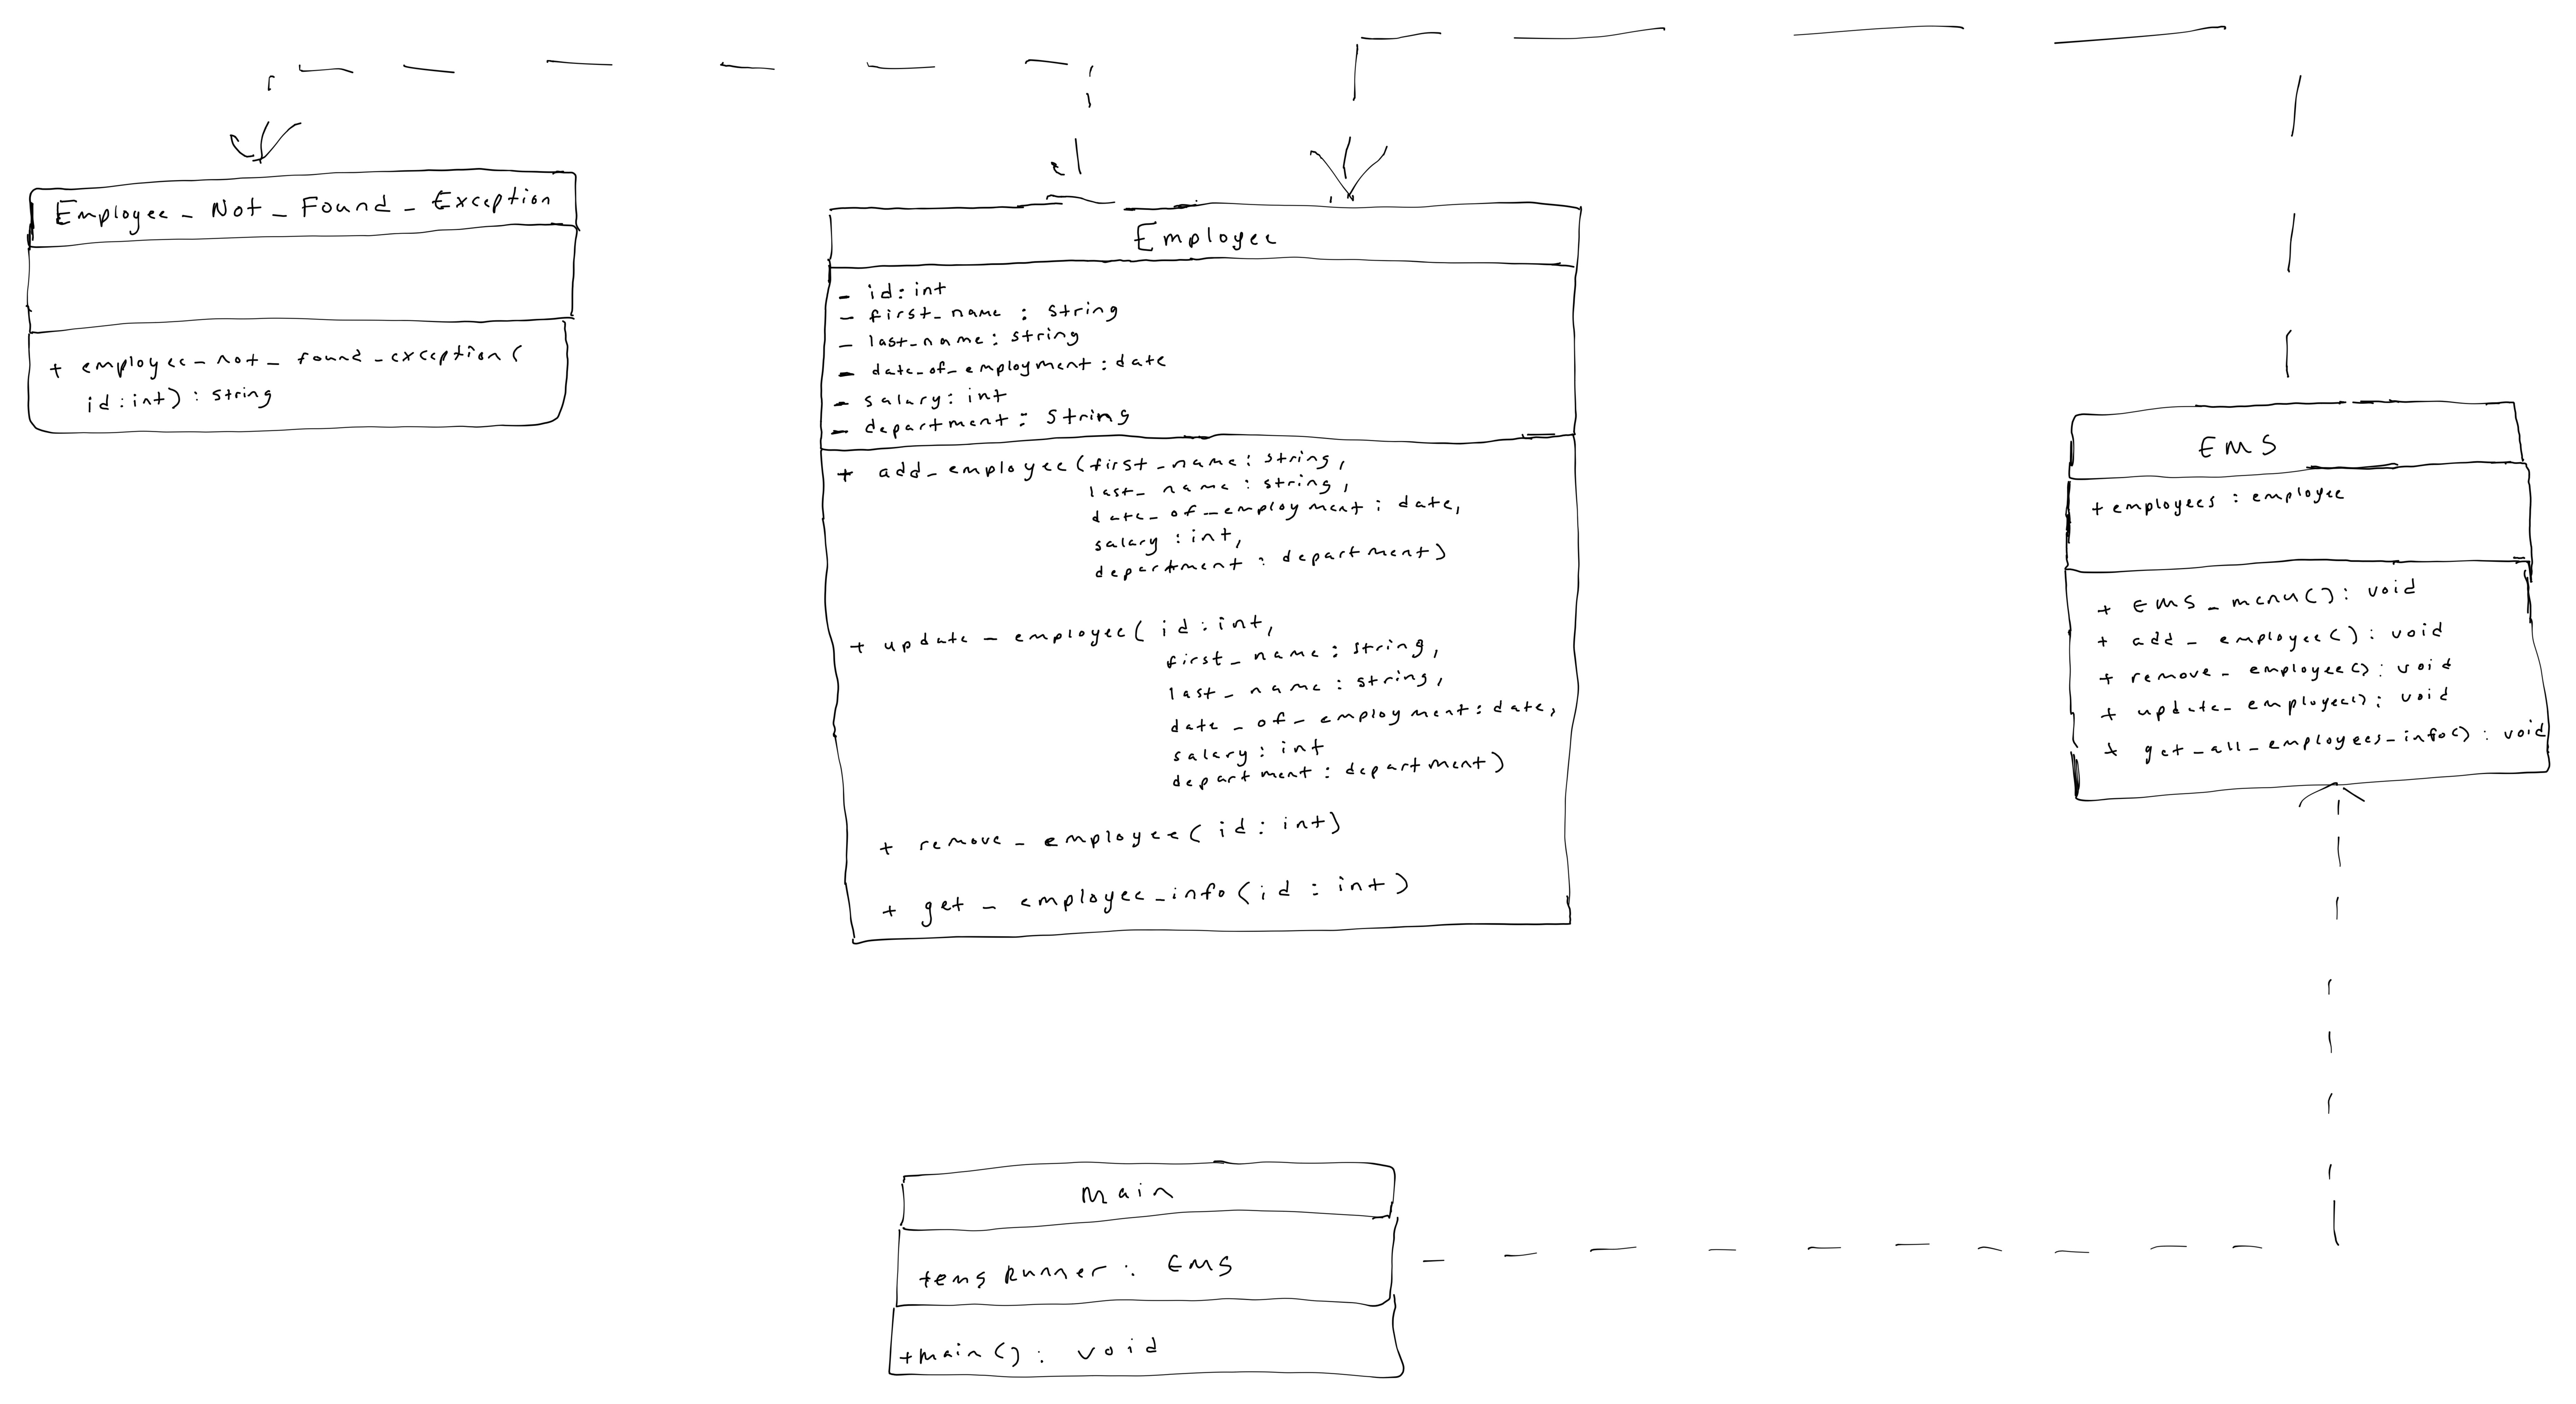 Employee_Not_Found_Exception
+ employee_not_found_exception(
id:int) : string
Employee
- id: int
- first_name : string
- last_name: string
- date_of_employment : date
- salary: int
- department: string
+ add_employee(first_name: string,
last_name : string,
date_of_employment : date,
salary : int,
department : department)
+ update_employee( id:int,
first_name : string,
last_name : string,
date_of_employment: date,
salary: int
department : department)
+ remove_employee( id: int)
+ get_employee_info(id : int)
EMS
+ employees : employee
+ EMS_menu(): void
+ add_employee() : void
+ remove_employee() : void
+ update_employee() : void
+ get_all_employees_info() : void
Main
+ems Runner: EMS
+main(): void